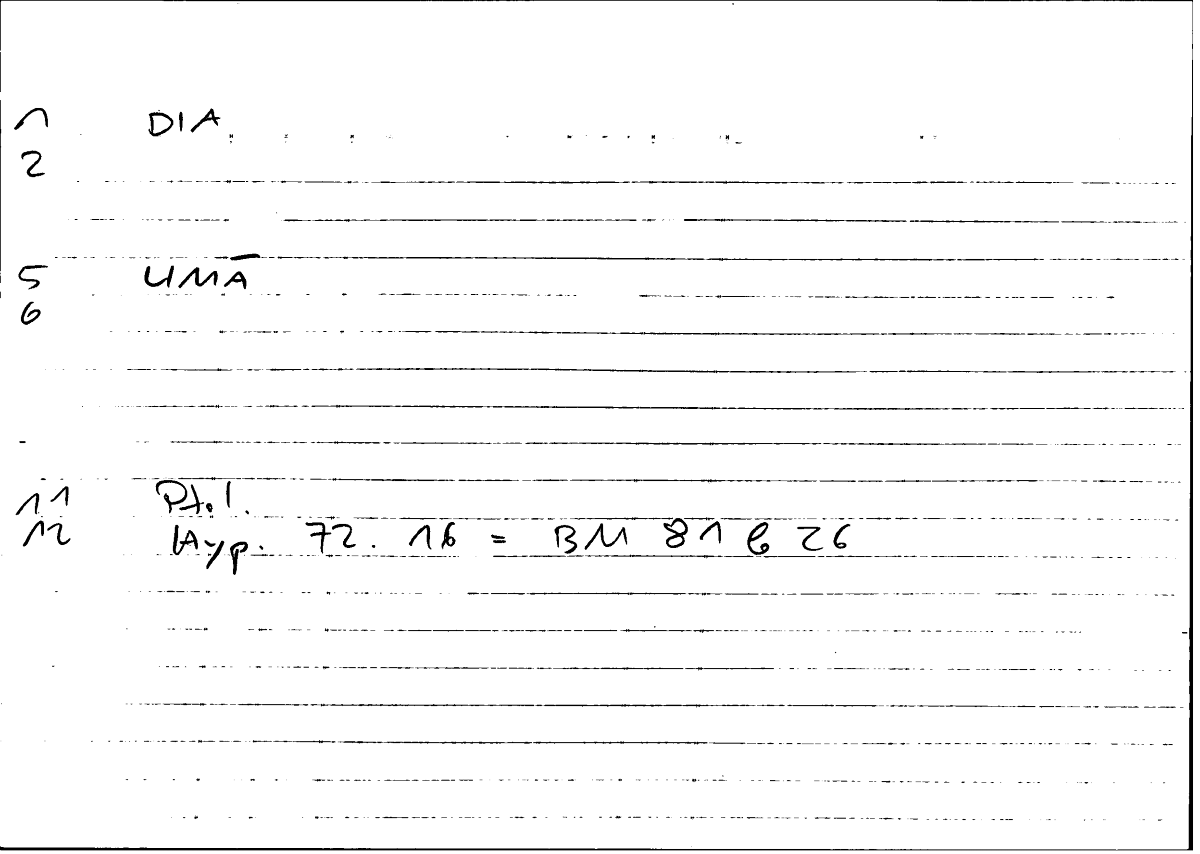 1 DIA
2
5 UMĀ
6
11 Pt.l.
12 Hyp. 72.16 = BM 81 b 26